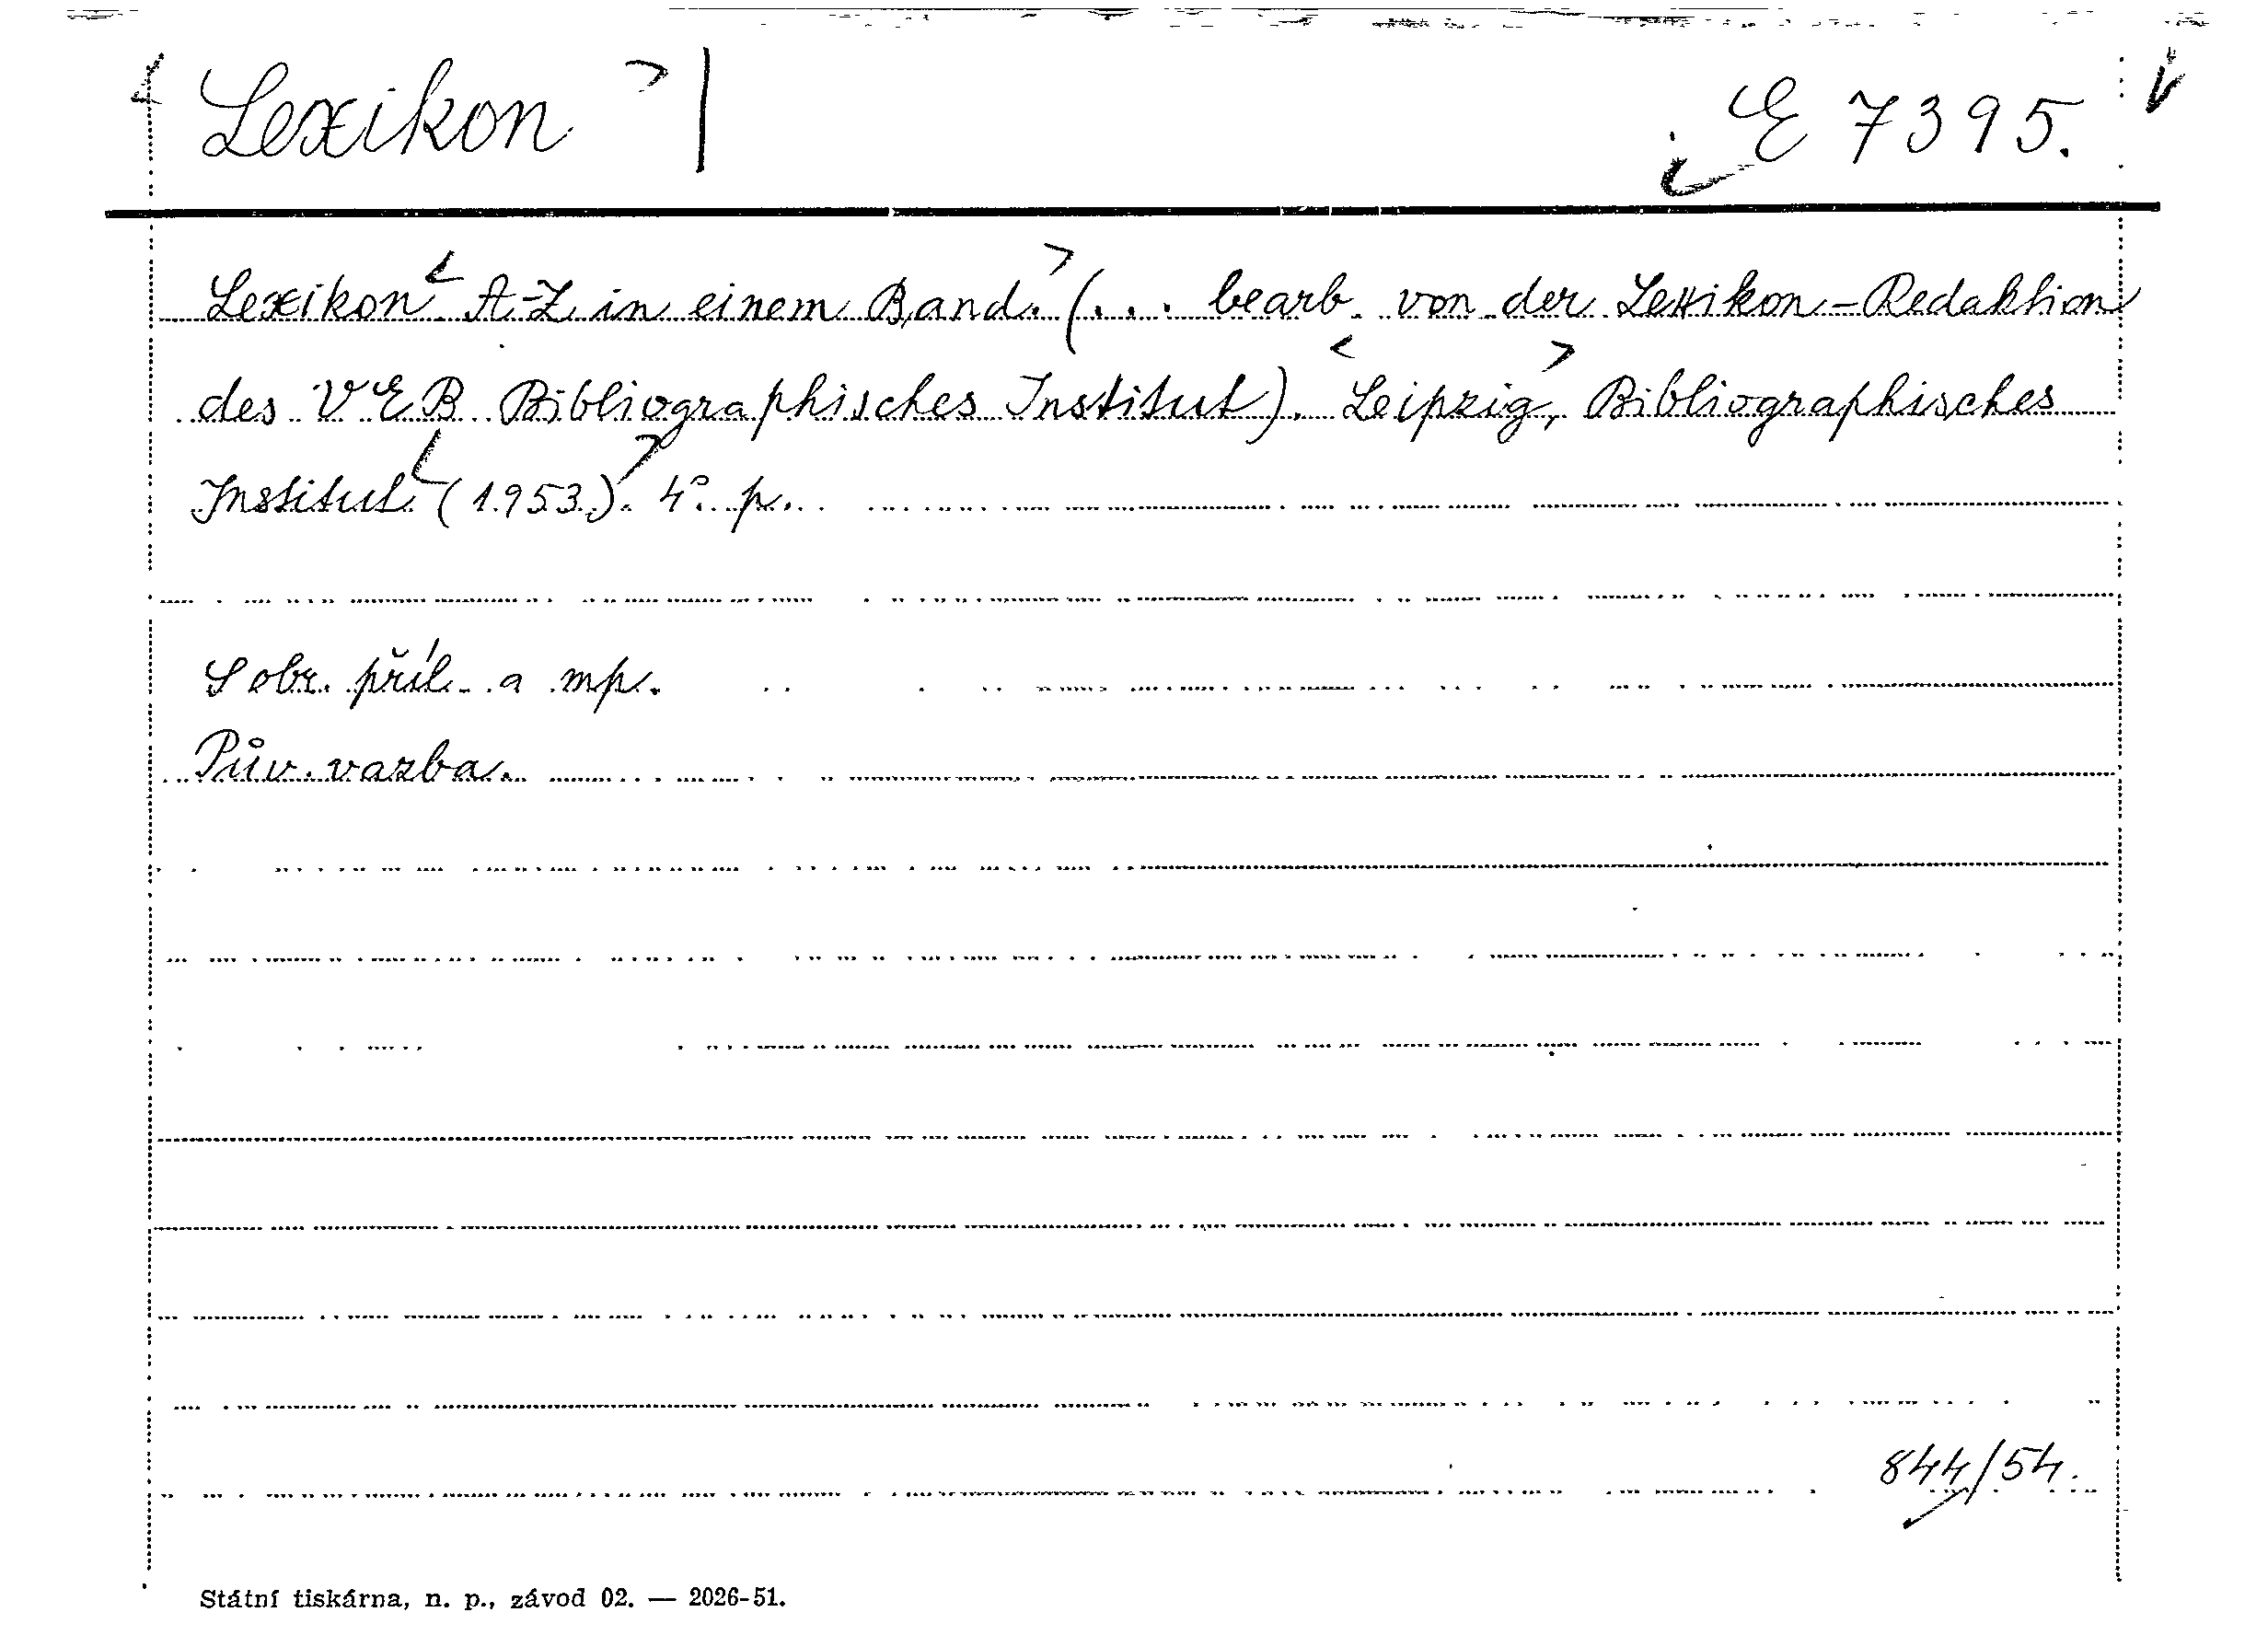 Lexikon E 7395.
Lexikon A-Z in einem Band. (... bearb. von der Lexikon-Redaktion
des VEB Bibliographisches Institut). Leipzig, Bibliographisches
Institut (1953). 4°. p.
S obr. příl. a mp.
Pův. vazba.
844/54.
Státní tiskárna, n. p., závod 02. — 2026-51.